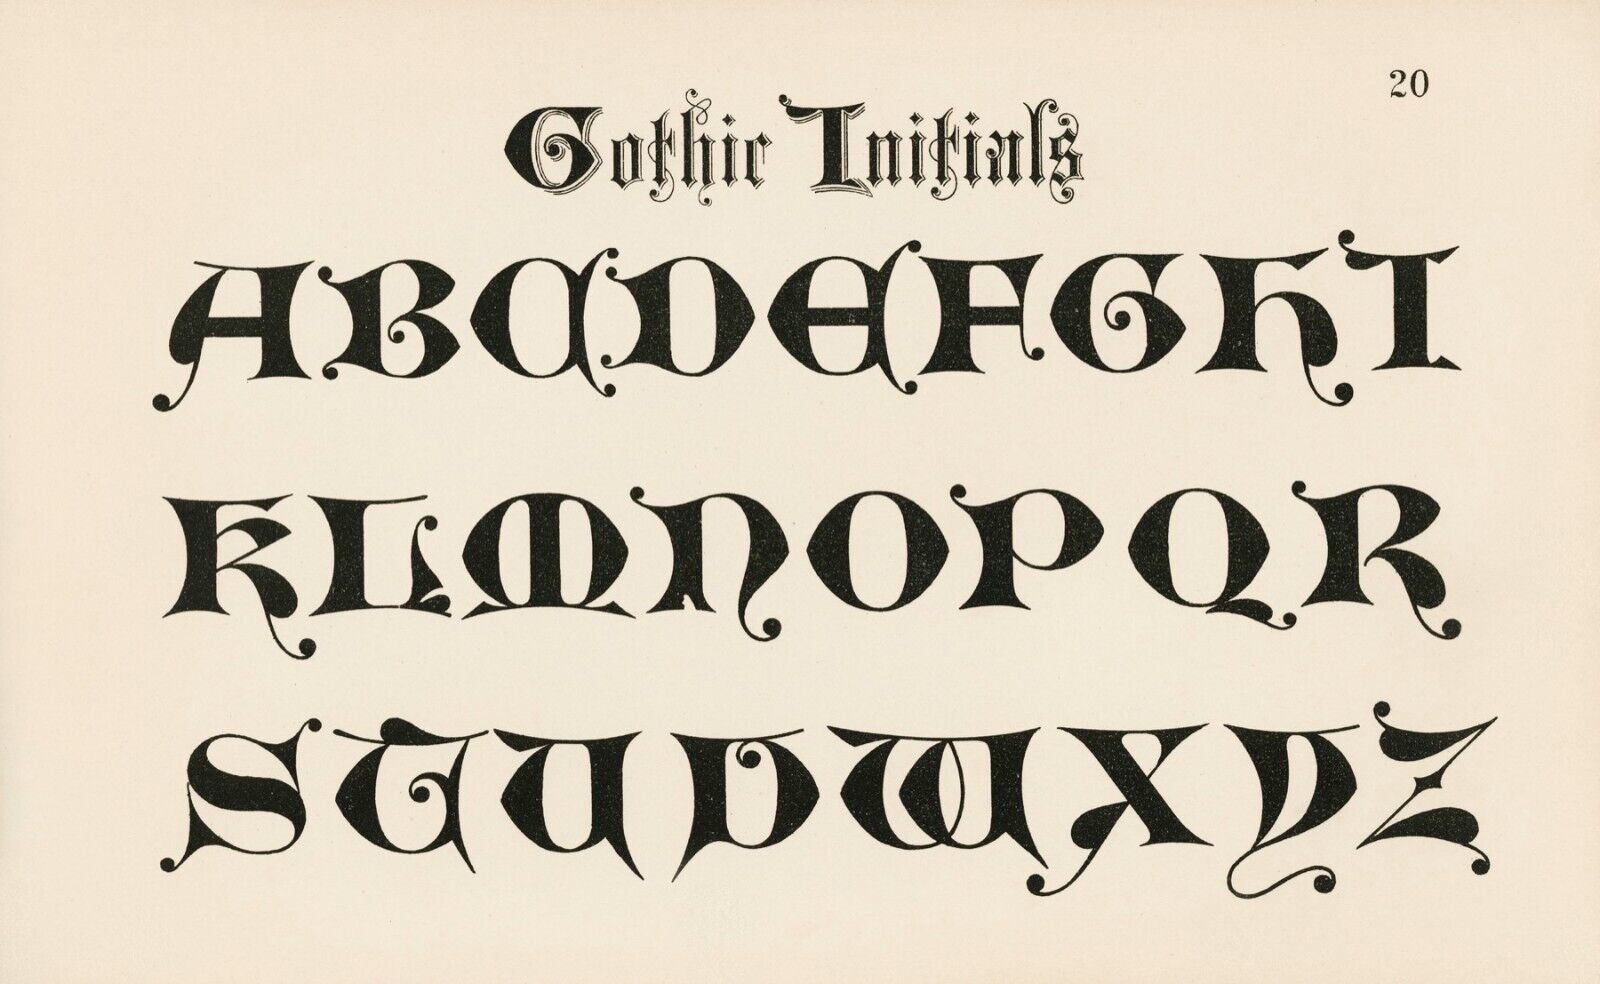 20
Gothic Initials
ABCDEFGHI
KLMNOPQR
STUVWXYZ